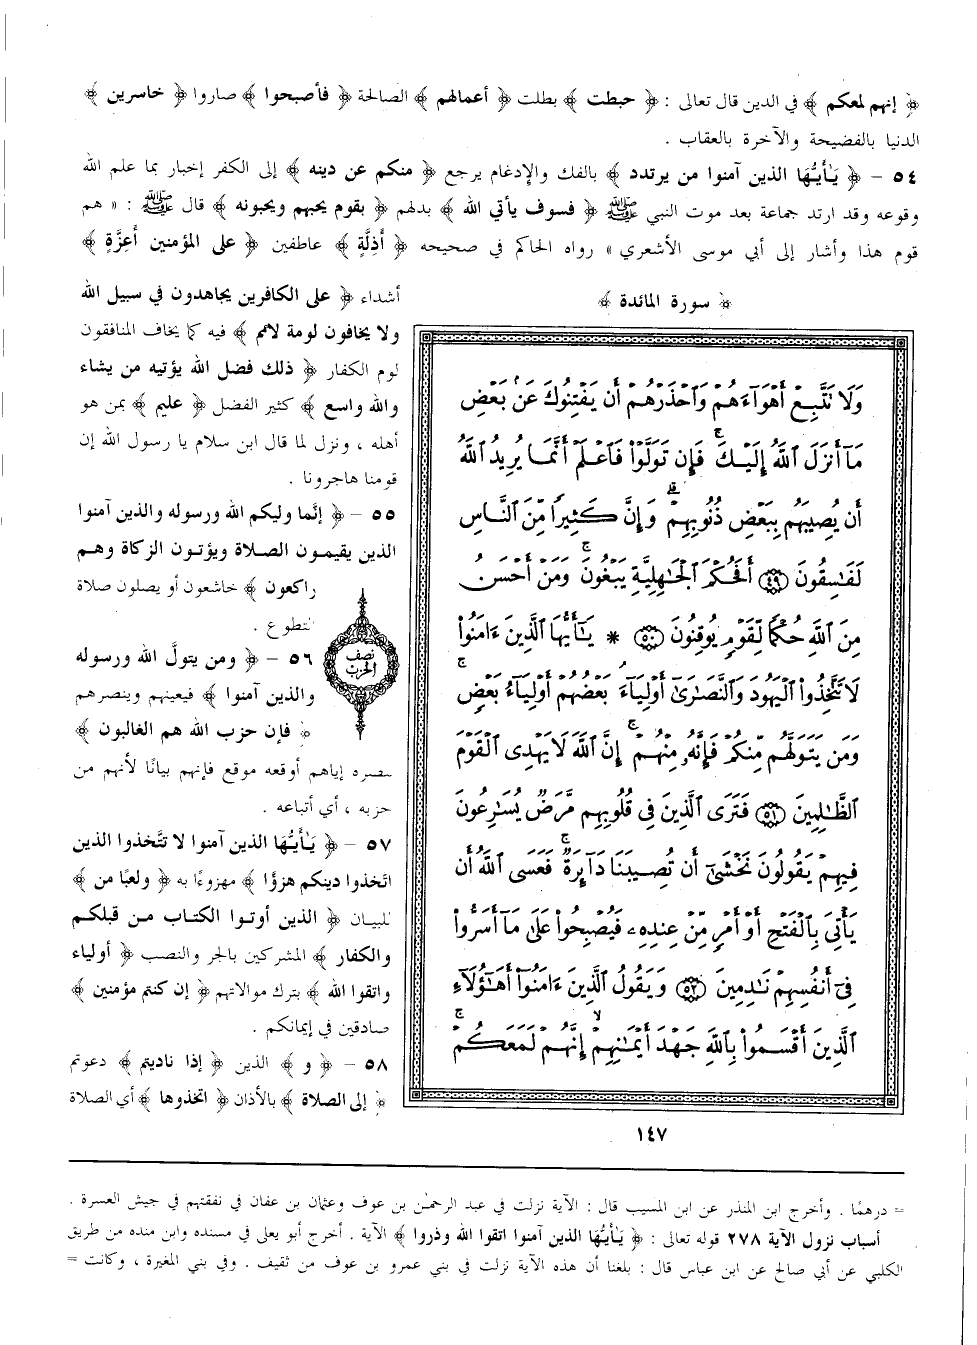 ﴿ إنهم لمعكم ﴾ في الدين قال تعالى : ﴿ حبطت ﴾ بطلت ﴿ أعمالهم ﴾ الصالحة ﴿ فأصبحوا ﴾ صاروا ﴿ خاسرين ﴾
الدنيا بالفضيحة والآخرة بالعقاب .
٥٤ – ﴿ يَأَيُّهَا الذين آمنوا من يرتدد ﴾ بالفك والإدغام يرجع ﴿ منكم عن دينه ﴾ إلى الكفر إخبار بما علم الله
وقوعه وقد ارتد جماعة بعد موت النبي ﷺ ﴿ فسوف يأتي الله ﴾ بدلهم ﴿ بقوم يحبهم ويحبونه ﴾ قال ﷺ : « هم
قوم هذا وأشار إلى أبي موسى الأشعري » رواه الحاكم في صحيحه ﴿ أَذِلَّةٍ ﴾ عاطفين ﴿ على المؤمنين أَعِزَّةٍ ﴾
أشداء ﴿ على الكافرين يجاهدون في سبيل الله
ولا يخافون لومة لائم ﴾ فيه كما يخاف المنافقون
لوم الكفار ﴿ ذلك فضل الله يؤتيه من يشاء
والله واسع ﴾ كثير الفضل ﴿ عليم ﴾ بمن هو
أهله ، ونزل لما قال ابن سلام يا رسول الله إن
قومنا هاجرونا .
٥٥ – ﴿ إنما وليكم الله ورسوله والذين آمنوا
الذين يقيمون الصلاة ويؤتون الزكاة وهم
راكعون ﴾ خاشعون أو يصلون صلاة
التطوع .
٥٦ – ﴿ ومن يتولَّ الله ورسوله
والذين آمنوا ﴾ فيعينهم وينصرهم
﴿ فإن حزب الله هم الغالبون ﴾
بنصره إياهم أوقعه موقع فإنهم بيانًا لأنهم من
حزبه ، أي أتباعه .
٥٧ – ﴿ يَأَيُّهَا الذين آمنوا لا تتَّخذوا الذين
اتَّخذوا دينكم هزؤا ﴾ مهزوءًا به ﴿ ولعبًا من ﴾
للبيان ﴿ الذين أوتوا الكتاب من قبلكم
والكفار ﴾ المشركين بالجر والنصب ﴿ أولياء
واتقوا الله ﴾ بترك موالاتهم ﴿ إن كنتم مؤمنين ﴾
صادقين في إيمانكم .
٥٨ – ﴿ و ﴾ الذين ﴿ إذا ناديتم ﴾ دعوتم
﴿ إلى الصلاة ﴾ بالأذان ﴿ اتخذوها ﴾ أي الصلاة
نصف
الحزب
﴿ سورة المائدة ﴾
وَلَا تَتَّبِعْ أَهْوَآءَهُمْ وَٱحْذَرْهُمْ أَن يَفْتِنُوكَ عَنۢ بَعْضِ
مَآ أَنزَلَ ٱللَّهُ إِلَيْكَ ۖ فَإِن تَوَلَّوْا۟ فَٱعْلَمْ أَنَّمَا يُرِيدُ ٱللَّهُ
أَن يُصِيبَهُم بِبَعْضِ ذُنُوبِهِمْ ۗ وَإِنَّ كَثِيرًا مِّنَ ٱلنَّاسِ
لَفَـٰسِقُونَ ٤٩ أَفَحُكْمَ ٱلْجَـٰهِلِيَّةِ يَبْغُونَ ۚ وَمَنْ أَحْسَنُ
مِنَ ٱللَّهِ حُكْمًا لِّقَوْمٍ يُوقِنُونَ ٥٠ * يَـٰٓأَيُّهَا ٱلَّذِينَ ءَامَنُوا۟
لَا تَتَّخِذُوا۟ ٱلْيَهُودَ وَٱلنَّصَـٰرَىٰٓ أَوْلِيَآءَ ۘ بَعْضُهُمْ أَوْلِيَآءُ بَعْضٍ ۚ
وَمَن يَتَوَلَّهُم مِّنكُمْ فَإِنَّهُۥ مِنْهُمْ ۗ إِنَّ ٱللَّهَ لَا يَهْدِى ٱلْقَوْمَ
ٱلظَّـٰلِمِينَ ٥١ فَتَرَى ٱلَّذِينَ فِى قُلُوبِهِم مَّرَضٌ يُسَـٰرِعُونَ
فِيهِمْ يَقُولُونَ نَخْشَىٰٓ أَن تُصِيبَنَا دَآئِرَةٌ ۚ فَعَسَى ٱللَّهُ أَن
يَأْتِىَ بِٱلْفَتْحِ أَوْ أَمْرٍ مِّنْ عِندِهِۦ فَيُصْبِحُوا۟ عَلَىٰ مَآ أَسَرُّوا۟
فِىٓ أَنفُسِهِمْ نَـٰدِمِينَ ٥٢ وَيَقُولُ ٱلَّذِينَ ءَامَنُوٓا۟ أَهَـٰٓؤُلَآءِ
ٱلَّذِينَ أَقْسَمُوا۟ بِٱللَّهِ جَهْدَ أَيْمَـٰنِهِمْ ۙ إِنَّهُمْ لَمَعَكُمْ ۚ
١٤٧
= درهمًا . وأخرج ابن المنذر عن ابن المسيب قال : الآية نزلت في عبد الرحمٰن بن عوف وعثمان بن عفان في نفقتهم في جيش العسرة .
أسباب نزول الآية ٢٧٨ قوله تعالى : ﴿ يَأَيُّهَا الذين آمنوا اتقوا الله وذروا ﴾ الآية . أخرج أبو يعلى في مسنده وابن منده من طريق
الكلبي عن أبي صالح عن ابن عباس قال : بلغنا أن هذه الآية نزلت في بني عمرو بن عوف من ثقيف . وفي بني المغيرة ، وكانت =